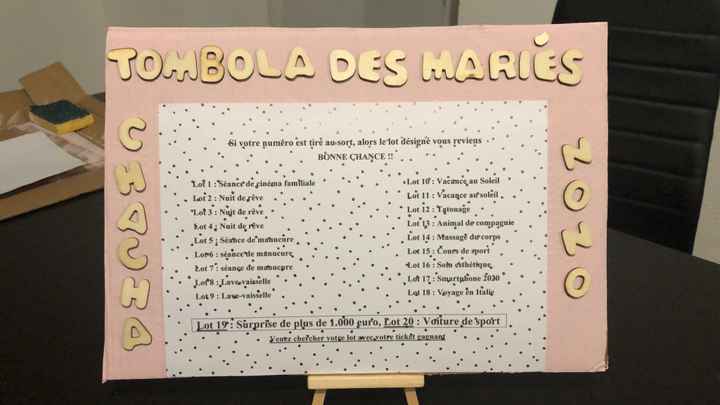 TOMBOLA DES MARIÉS
CHACHA
NONO
Si votre numéro est tiré au sort, alors le lot désigné vous reviens
BONNE CHANCE !!
Lot 1 : Séance de cinéma familiale
Lot 2 : Nuit de rêve
Lot 3 : Nuit de rêve
Lot 4 : Nuit de rêve
Lot 5 : Séance de manucure
Lot 6 : séance de manucure
Lot 7 : séance de manucure
Lot 8 : Lave-vaisselle
Lot 9 : Lave-vaisselle
Lot 10 : Vacance au Soleil
Lot 11 : Vacance au soleil
Lot 12 : Tatouage
Lot 13 : Animal de compagnie
Lot 14 : Massage du corps
Lot 15 : Cours de sport
Lot 16 : Soin esthétique
Lot 17 : Smartphone 2030
Lot 18 : Voyage en Italie
Lot 19 : Surprise de plus de 1.000 euro, Lot 20 : Voiture de sport
Venez chercher votre lot avec votre ticket gagnant